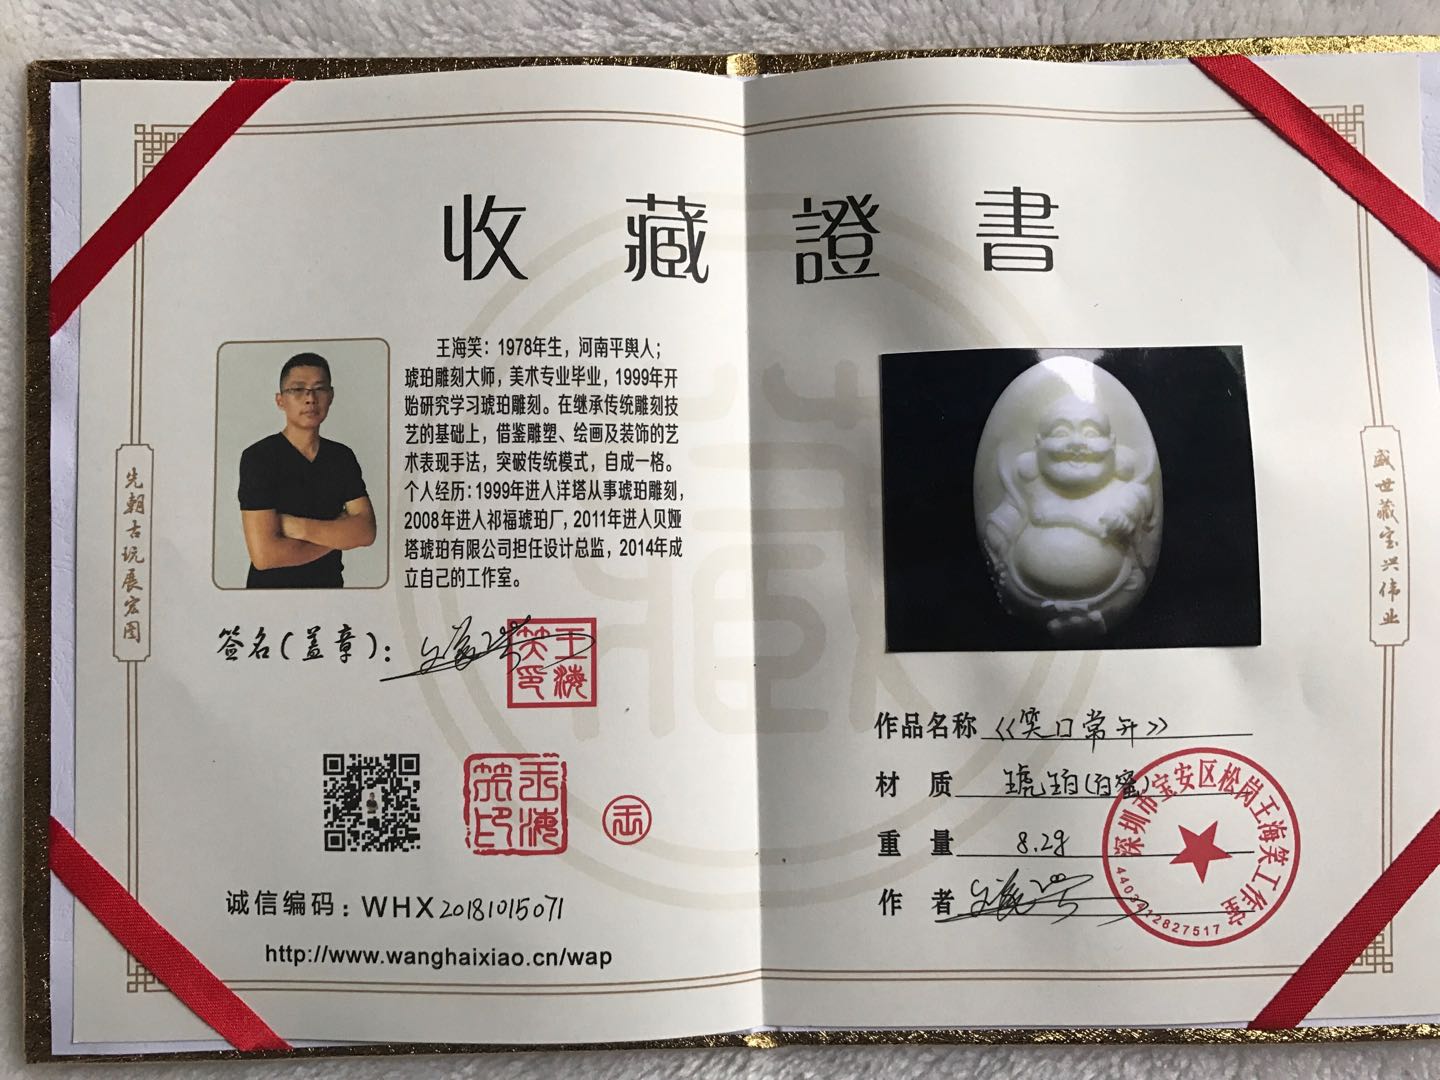 收藏證書
王海笑：1978年生，河南平舆人；
琥珀雕刻大师，美术专业毕业，1999年开
始研究学习琥珀雕刻。在继承传统雕刻技
艺的基础上，借鉴雕塑、绘画及装饰的艺
术表现手法，突破传统模式，自成一格。
个人经历：1999年进入洋塔从事琥珀雕刻，
2008年进入祁福琥珀厂，2011年进入贝娅
塔琥珀有限公司担任设计总监，2014年成
立自己的工作室。
签名(盖章)：
王海笑印
王海笑印
诚信编码：WHX20181015071
http://www.wanghaixiao.cn/wap
先朝古玩展宏图
作品名称《笑口常开》
材质 琥珀(白蜜)
重量 8.2g
作者
深圳市宝安区松岗王海笑工作室
4403412827517
盛世藏宝兴伟业